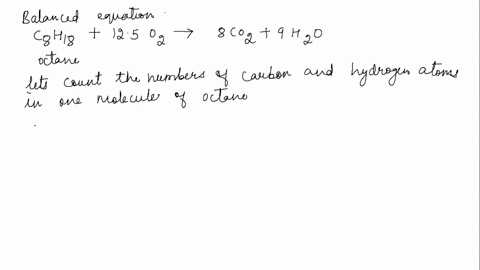 Balanced equation
C8H18 + 12.5 O2 → 8CO2 + 9H2O
octane
lets count the numbers of carbon and hydrogen atoms
in one molecule of octane